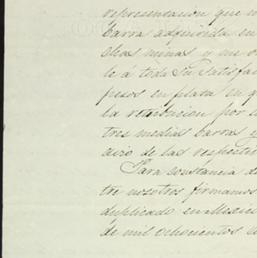 representacion que
barra adquirida en
chas minas y me o
le á toda Su Satisfac
pesos en plata en q
la retribucion por
tres medias barras y
diro de las respecti
Para constancia d
tre nosotros firmamos
duplicado en Mexic
de mil ochocientos